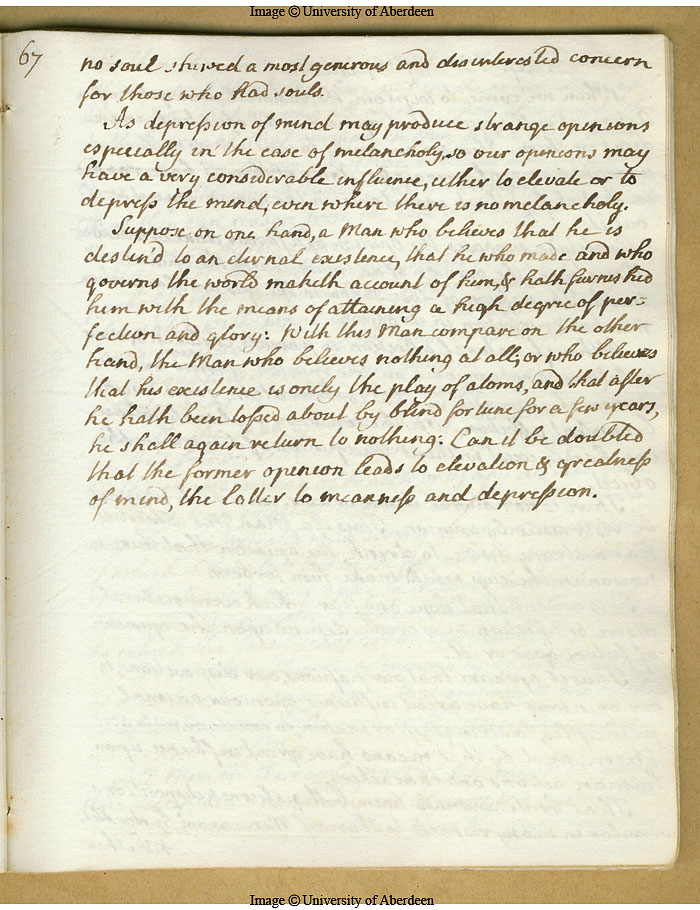 Image © University of Aberdeen
67
no soul shewed a most generous and disinterested concern
for those who had souls.
As depression of mind may produce strange opinions
especially in the case of melancholy, so our opinions may
have a very considerable influence, either to elevate or to
depress the mind, even where there is no melancholy.
Suppose on one hand, a Man who believes that he is
destin'd to an eternal existence, that he who made and who
governs the world maketh account of him, & hath furnished
him with the means of attaining a high degree of per=
fection and glory: With this Man compare on the other
hand, the Man who believes nothing at all; or who believes
that his existence is only the play of atoms, and that after
he hath been tossed about by blind fortune for a few years,
he shall again return to nothing: Can it be doubted
that the former opinion leads to elevation & greatness
of mind, the latter to meanness and depression.
Image © University of Aberdeen